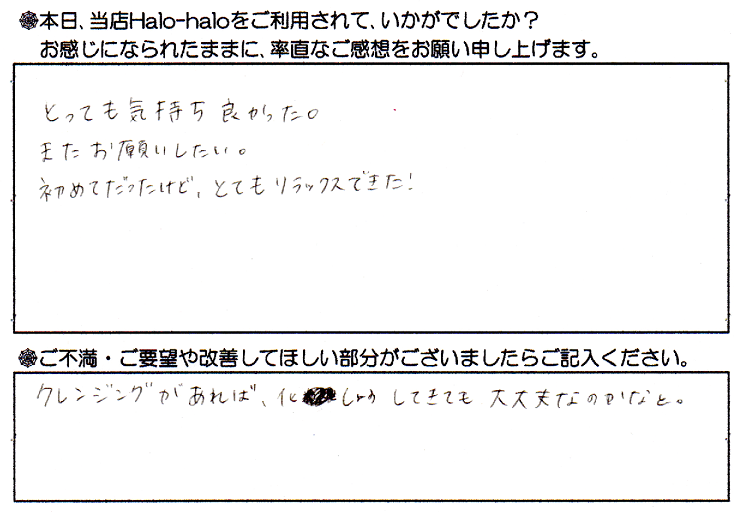 本日、当店Halo-haloをご利用されて、いかがでしたか？
お感じになられたままに、率直なご感想をお願い申し上げます。
とっても気持ち良かった。
またお願いしたい。
初めてだったけど、とてもリラックスできた!
ご不満・ご要望や改善してほしい部分がございましたらご記入ください。
クレンジングがあれば、化しょうしてきても大丈夫なのかなと。